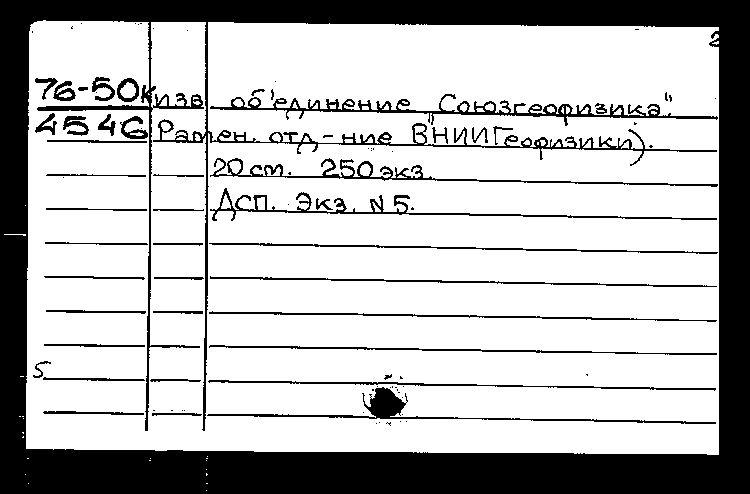 2
76-50К изв. об'единение "Союзгеофизика".
4546 Рамен. отд-ние ВНИИГеофизики).
20 ст. 250 экз.
Дсп. Экз. N 5.
5